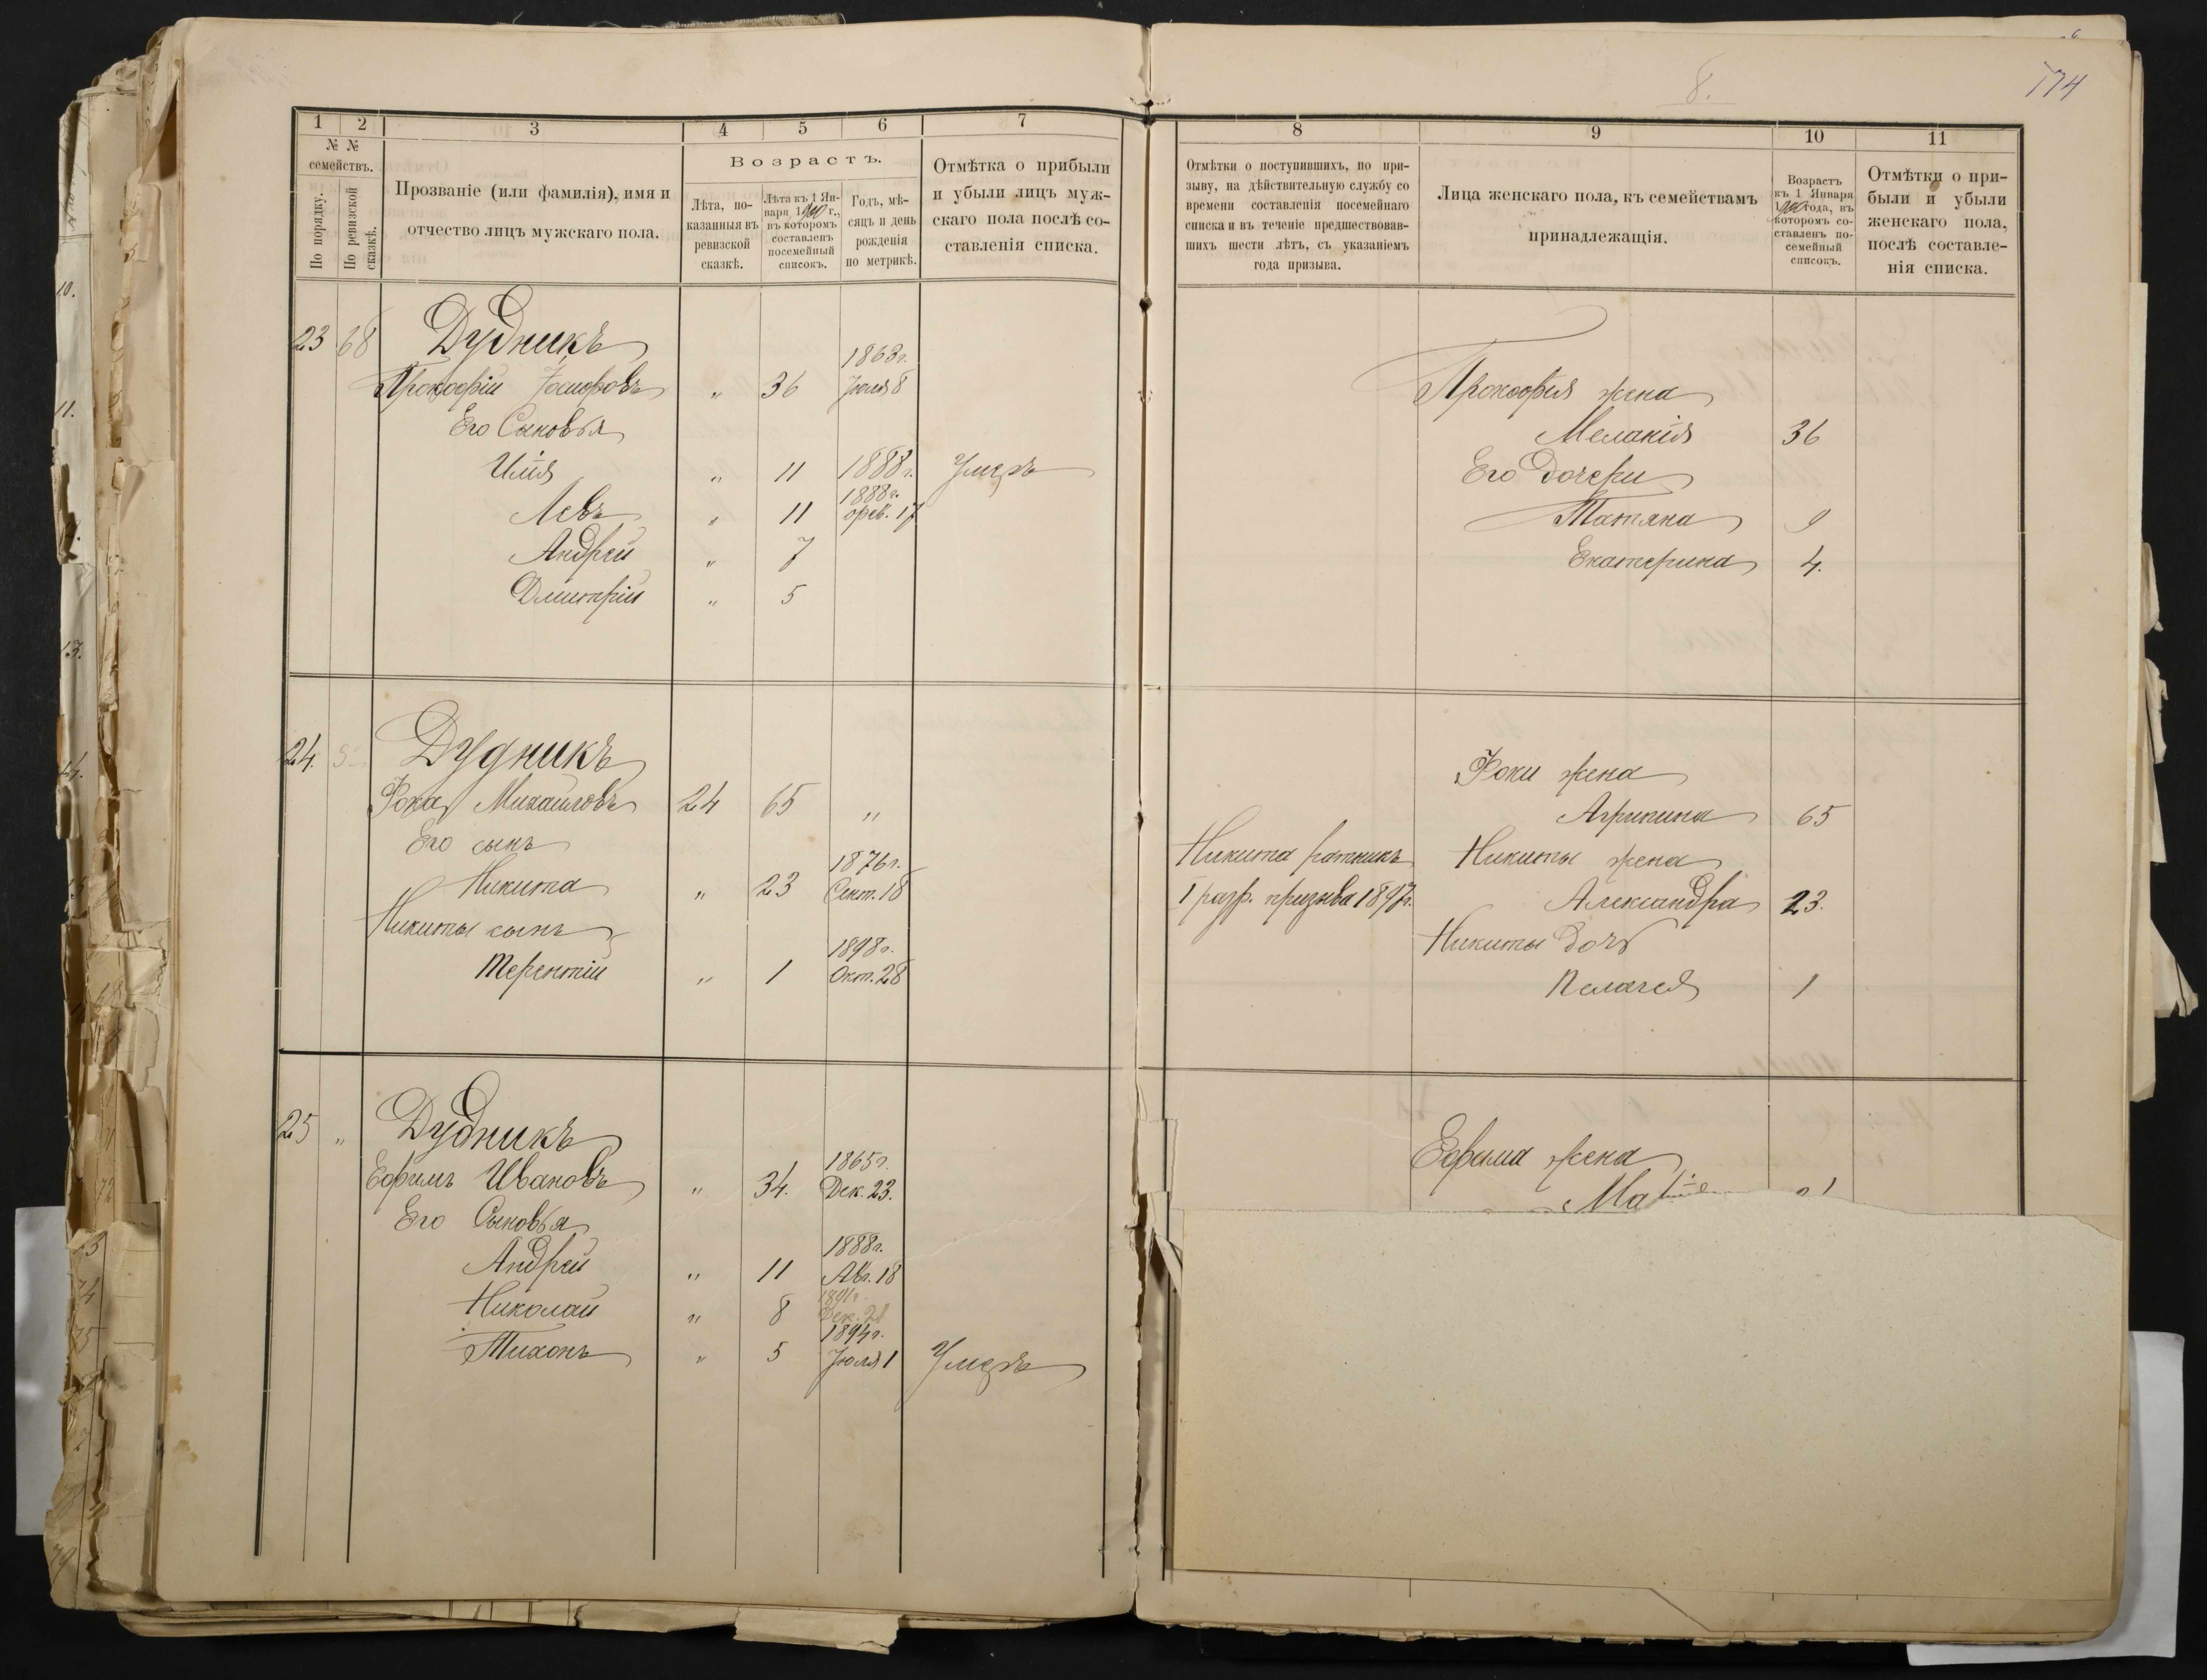 8.
174
1 2 3 4 5 6 7
№ №
семействъ.
По порядку.
По ревизской сказкѣ.
Прозваніе (или фамилія), имя и
отчество лицъ мужскаго пола.
Возрастъ.
Лѣта, по-
казанныя въ
ревизской
сказкѣ.
Лѣта къ 1 Ян-
варя 1900 г.,
въ которомъ
составленъ
посемейный
списокъ.
Годъ, мѣ-
сяцъ и день
рожденія
по метрикѣ.
Отмѣтка о прибыли
и убыли лицъ муж-
скаго пола послѣ со-
ставленія списка.
23 68 Дудникъ
1863 г.
Прокофій Іосифовъ " 36 Іюля 8
Его Сыновья
Илія " 11 1888 г. Умеръ
1888 г.
Левъ " 11 фев. 17
Андрей " 7
Дмитрій " 5
24. Дудникъ
Фока Михайловъ 24 65 "
Его сынъ
1876 г.
Никита " 23 Сент. 18
Никиты сынъ
1898 г.
Терентій " 1 Окт. 28
25 " Дудникъ
1865 г.
Ефимъ Ивановъ " 34. Дек. 23.
Его Сыновья
1888 г.
Андрей " 11 Авг. 18
1891 г.
Николай " 8 Дек. 21
1894 г.
Тихонъ " 5 Іюля 1 Умеръ
8 9 10 11
Отмѣтки о поступившихъ, по при-
зыву, на дѣйствительную службу со
времени составленія посемейнаго
списка и въ теченіе предшествовав-
шихъ шести лѣтъ, съ указаніемъ
года призыва.
Лица женскаго пола, къ семействамъ
принадлежащія.
Возрастъ
къ 1 Января
1900 года, въ
которомъ со-
ставленъ по-
семейный
списокъ.
Отмѣтки о при-
были и убыли
женскаго пола,
послѣ составле-
нія списка.
Прокофія жена
Меланія 36
Его дочери
Татяна 9
Екатерина 4.
Фоки жена
Агрипина 65
Никита ратникъ Никиты жена
I разр. призыва 1897 г. Александра 23.
Никиты дочь
Пелагея 1
Ефима жена